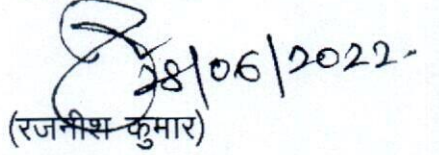 28/06/2022.
(रजनीश कुमार)